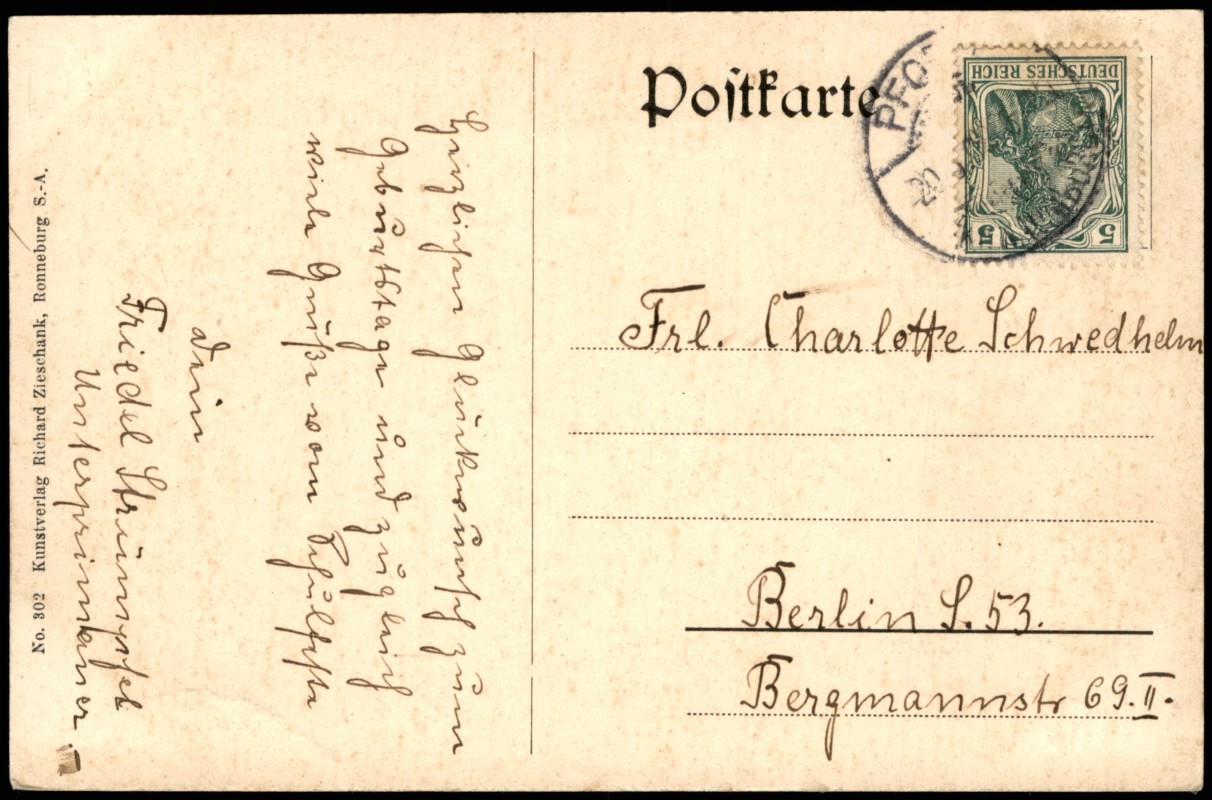 Postkarte
DEUTSCHES REICH
5 5
Frl. Charlotte Schwedhelm
Berlin S. 53.
Bergmannstr 69. II.
Herzlichen Glückwunsch zum
Geburtstage und zugleich
viele Grüße vom Schulfeste
Dein
Friedel
Unterprimaner.
No. 302 Kunstverlag Richard Zieschank, Ronneburg S.-A.